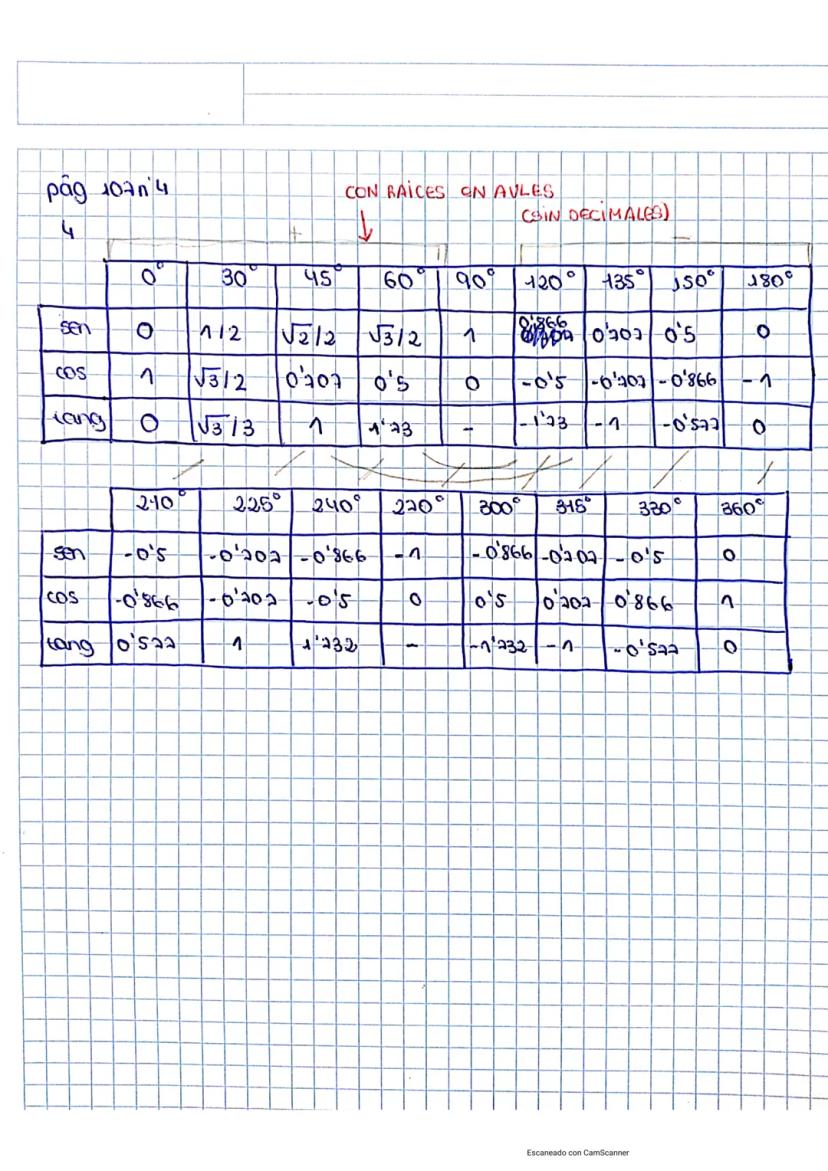 pág 107 nº 4
CON RAÍCES EN AULES
(SIN DECIMALES)
4
+ −
0° 30° 45° 60° 90° 120° 135° 150° 180°
sen 0 1/2 √2/2 √3/2 1 0'866 0'707 0'5 0
cos 1 √3/2 0'707 0'5 0 -0'5 -0'707 -0'866 -1
tang 0 √3/3 1 1'73 - -1'73 -1 -0'577 0
210° 225° 240° 270° 300° 315° 330° 360°
sen -0'5 -0'707 -0'866 -1 -0'866 -0'707 -0'5 0
cos -0'866 -0'707 -0'5 0 0'5 0'707 0'866 1
tang 0'577 1 1'732 - -1'732 -1 -0'577 0
Escaneado con CamScanner